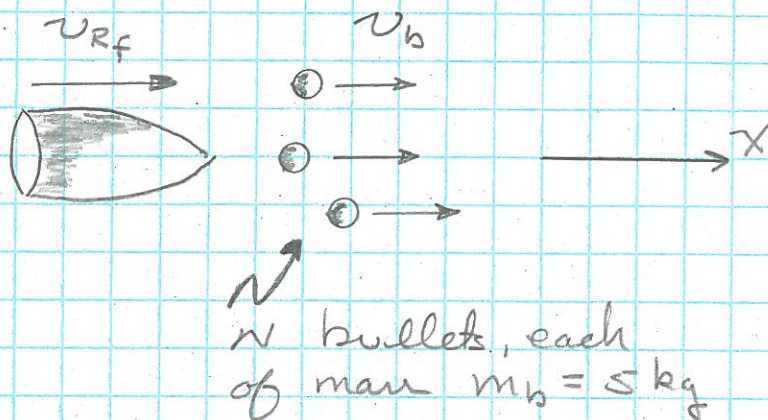 v_Rf v_b
X
N bullets, each
of mass m_b = 5 kg